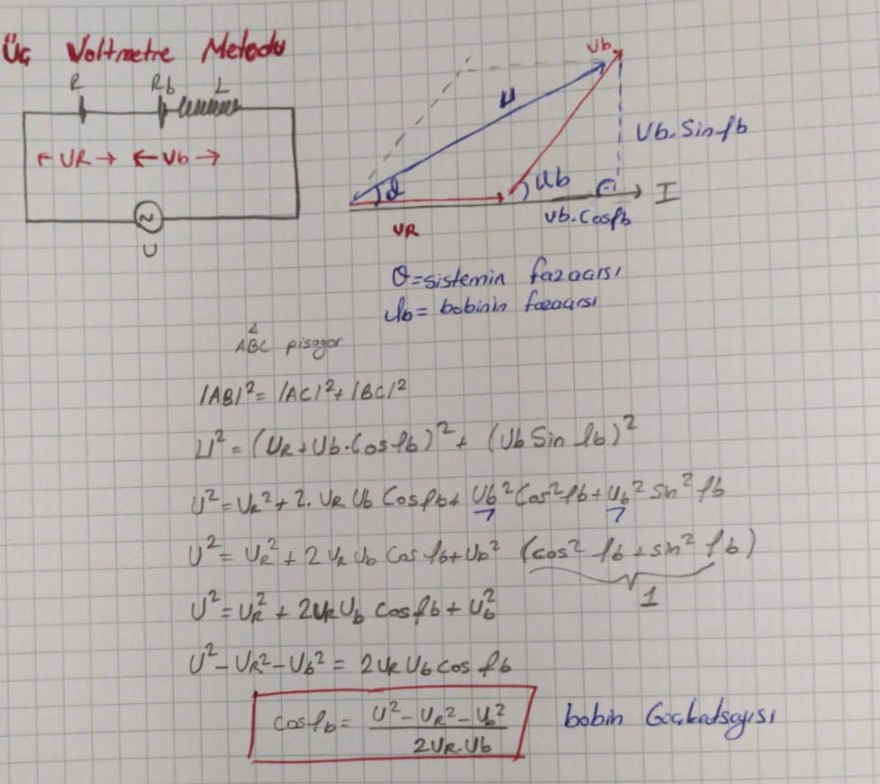 Üç Voltmetre Metodu
R Rb L
← UR → ← Ub →
U
Ub
U
Ub. Sin φb
θ φb I
UR Ub.Cosφb
θ=sistemin fazaçısı
φb= bobinin fazaçısı
ABC pisagor
|AB|²= |AC|²+ |BC|²
U²= (UR+Ub.Cosφb)²+ (Ub Sin φb)²
U²= UR²+ 2. UR Ub Cosφb+ Ub² Cos²φb+ Ub² Sin² φb
U²= UR²+ 2 UR Ub Cos φb+Ub² (cos² φb + sin² φb)
1
U²= UR² + 2UR Ub Cosφb + Ub²
U²- UR²- Ub² = 2UR Ub cos φb
cosφb= U²- UR²- Ub² / 2UR.Ub bobin Güç katsayısı